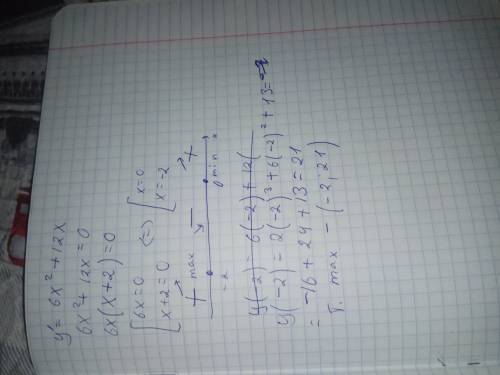 y' = 6x² + 12x
6x² + 12x = 0
6x(x+2) = 0
[6x=0 (=) [x=0
[x+2=0 [x=-2
+ max - +
-2 0 min x
y(-2) = 6(-2) + 12(
y(-2) = 2(-2)³ + 6(-2)² + 13 =
= -16 + 24 + 13 = 21
т. max - (-2; 21)